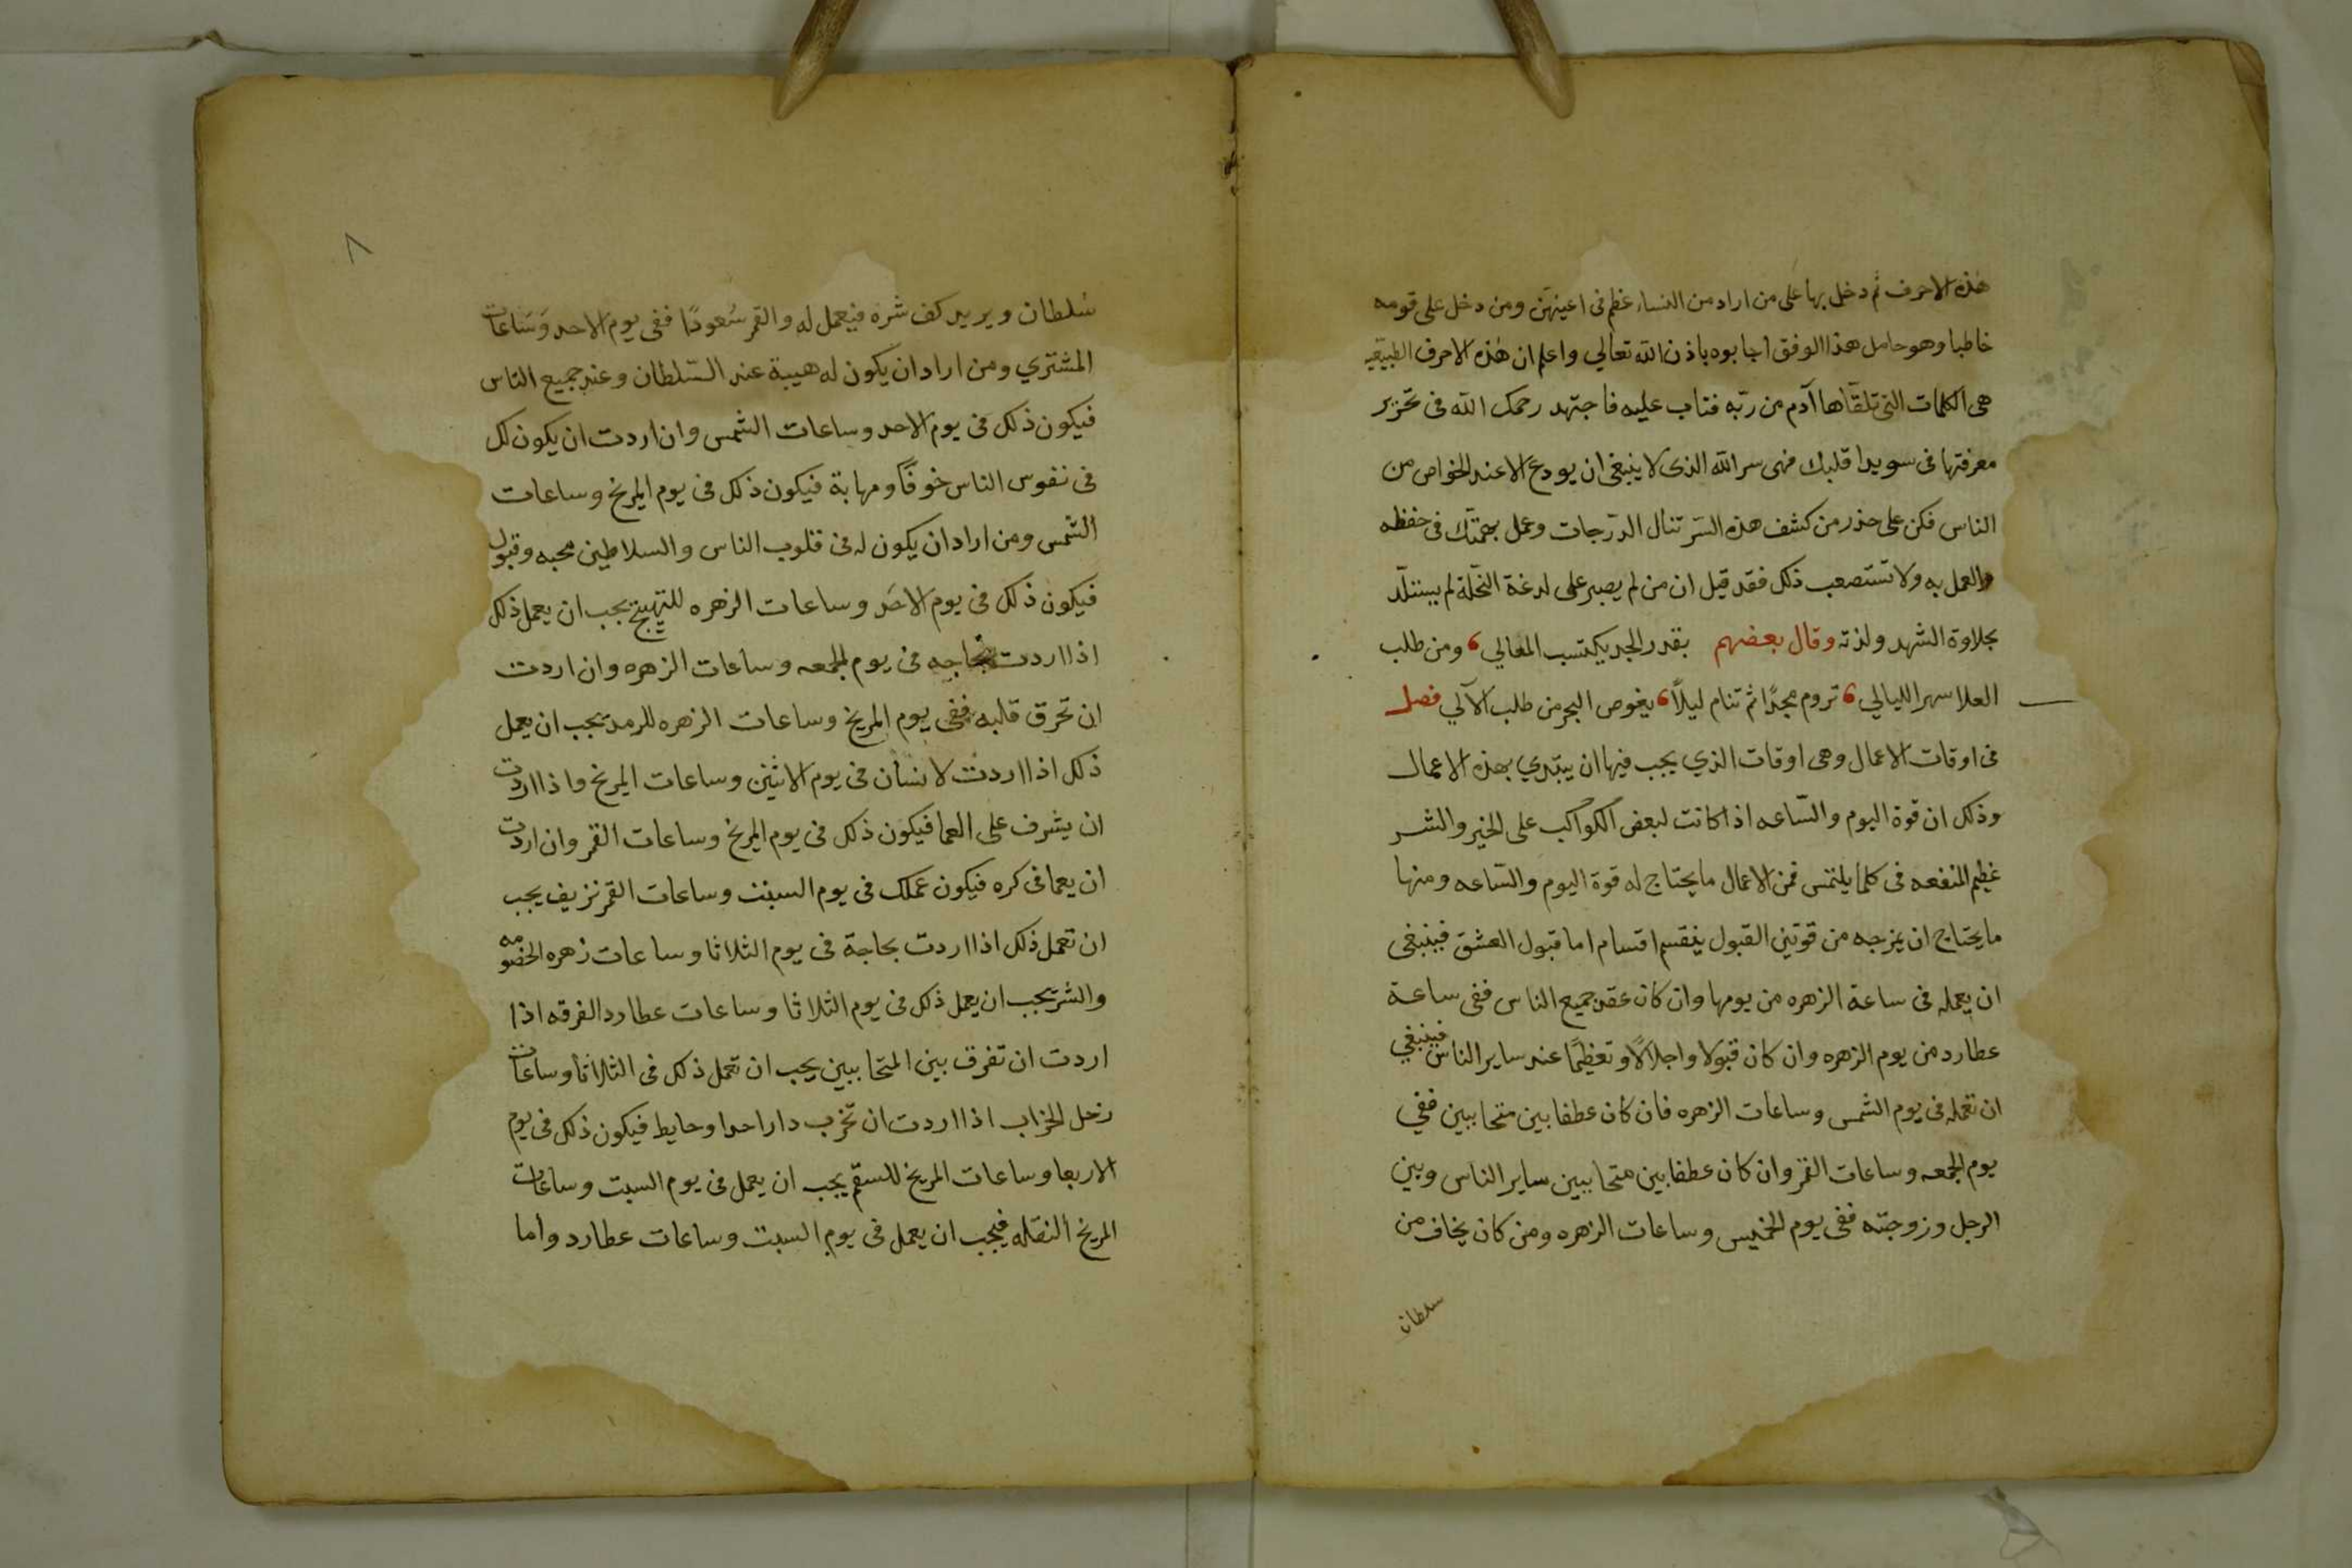 هذه الاحرف ثم دخل بها على من اراد من النساء عظم فى اعينهن ومن دخل على قومه
خاطبا وهو حامل هذا الوفق اجابوه باذن الله تعالي واعلم ان هذه الاحرف
هى الكلمات التى تلقاها آدم من ربه فتاب عليه فاجتهد رحمك الله فى تحرير
معرفتها فى سويدا قلبك فهى سر الله الذى لا ينبغى ان يودع الا عند الخواص من
الناس فكن على حذر من كشف هذه السر تنال الدرجات وعمل بهمتك فى حفظه
والعمل به ولا تستصعب ذلك فقد قيل ان من لم يصبر على لدغة النحلة لم يستلذ
بحلاوة الشهد ولذته وقال بعضهم بقدر الجد يكتسب المعالي ، ومن طلب
العلا سهر الليالي ، تروم مجدًا ثم تنام ليلاً ، يغوص البحر من طلب الآلي فصل
فى اوقات الاعمال وهى اوقات الذي يجب فيها ان يبتدي بهذه الاعمال
وذلك ان قوة اليوم والساعه اذا كانت لبعض الكواكب على الخير والشر
عظيم المنفعه فى كلما يلتمس فمن الاعمال ما يحتاج له قوة اليوم والساعه ومنها
ما يحتاج ان يمزجه من قوتين القبول ينقسم اقسام اما قبول العشق فينبغى
ان يعمله فى ساعة الزهره من يومها وان كان عقد جميع الناس ففى ساعة
عطارد من يوم الزهره وان كان قبولا واجلالًا وتعظيمًا عند ساير الناس فينبغي
ان تعمله فى يوم الشمس وساعات الزهره فان كان عطفا بين متحاببين ففي
يوم الجمعه وساعات القمر وان كان عطفا بين متحاببين ساير الناس وبين
الرجل وزوجته ففى يوم الخميس وساعات الزهره ومن كان يخاف من
سلطان
٨
سُلطان ويريد كف شره فيعمل له والقمر سُعودًا ففى يوم الاحد وَسَاعات
المشتري ومن اراد ان يكون له هيبة عند السّلطان وعند جميع الناس
فيكون ذلك فى يوم الاحد وساعات الشمس وان اردت ان يكون لك
فى نفوس الناس خوفًا ومهابة فيكون ذلك فى يوم المريخ وساعات
الشمس ومن اراد ان يكون له فى قلوب الناس والسلاطين محبه وقبول
فيكون ذلك فى يوم الاحَد وساعات الزهره للتهييج يجب ان يعمل ذلك
اذا اردت فى يوم الجمعه وساعات الزهره وان اردت
ان تحرق قلبه ففى يوم المريخ وساعات الزهره للرمد يجب ان يعمل
ذلك اذا اردت لانسان فى يوم الاثنين وساعات المريخ واذا اردت
ان يشرف على العما فيكون ذلك فى يوم المريخ وساعات القمر وان اردت
ان يعما فى كره فيكون عملك فى يوم السبت وساعات القمر نزيف يجب
ان تعمل ذلك اذا اردت بحاجة فى يوم الثلاثا وساعات زهره الخصومه
والشر يجب ان يعمل ذلك فى يوم الثلاثا وساعات عطارد الفرقه اذا
اردت ان تفرق بين المتحاببين يجب ان تعمل ذلك فى الثلاثا وساعات
زحل الخراب اذا اردت ان تخرب دار احد او حايط فيكون ذلك فى يوم
الاربعا وساعات المريخ للسقم يجب ان يعمل فى يوم السبت وساعات
المريخ النقله فيجب ان يعمل فى يوم السبت وساعات عطارد واما